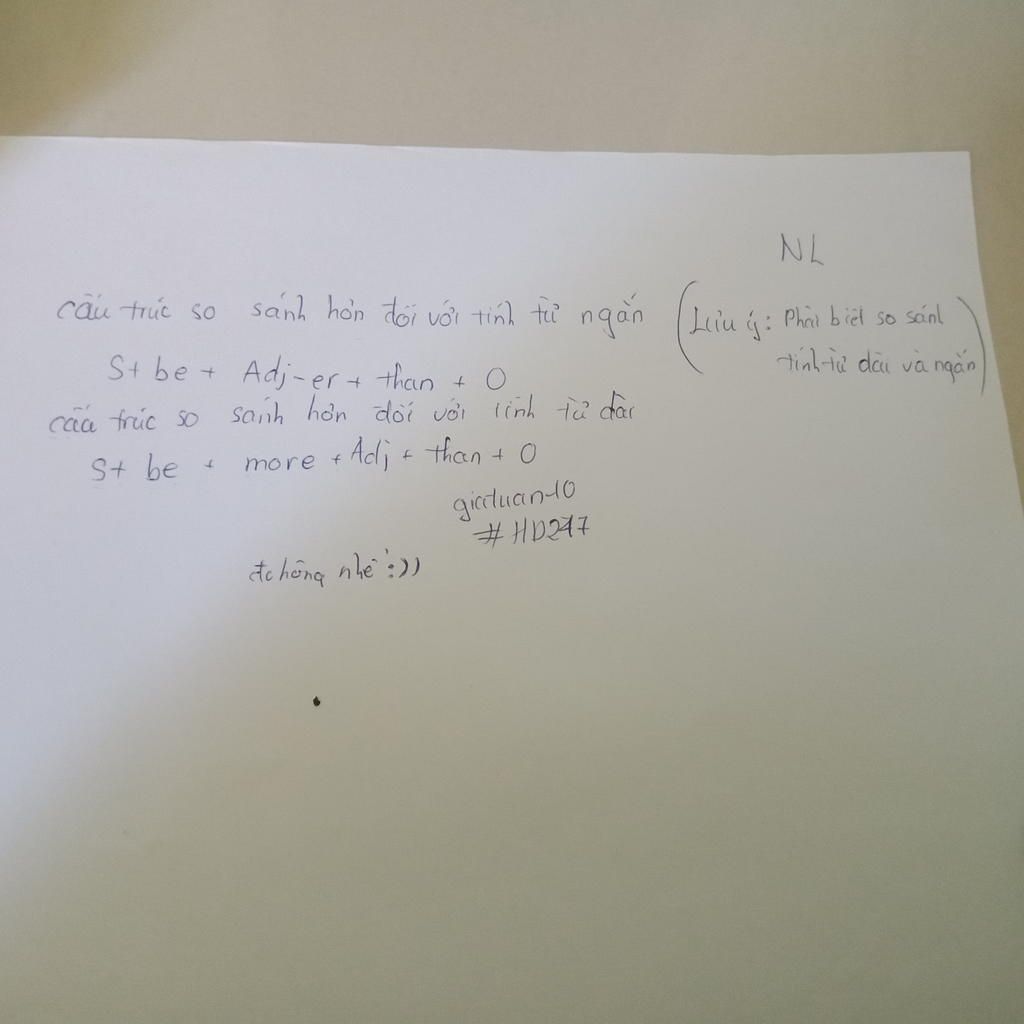 NL
cấu trúc so sánh hơn đối với tính từ ngắn
(Lưu ý: Phải biết so sánh
tính từ dài và ngắn)
S+ be + Adj-er + than + O
cấu trúc so sánh hơn đối với tính từ dài
S+ be + more + Adj + than + O
giatuan-10
#HD247
nhé :))